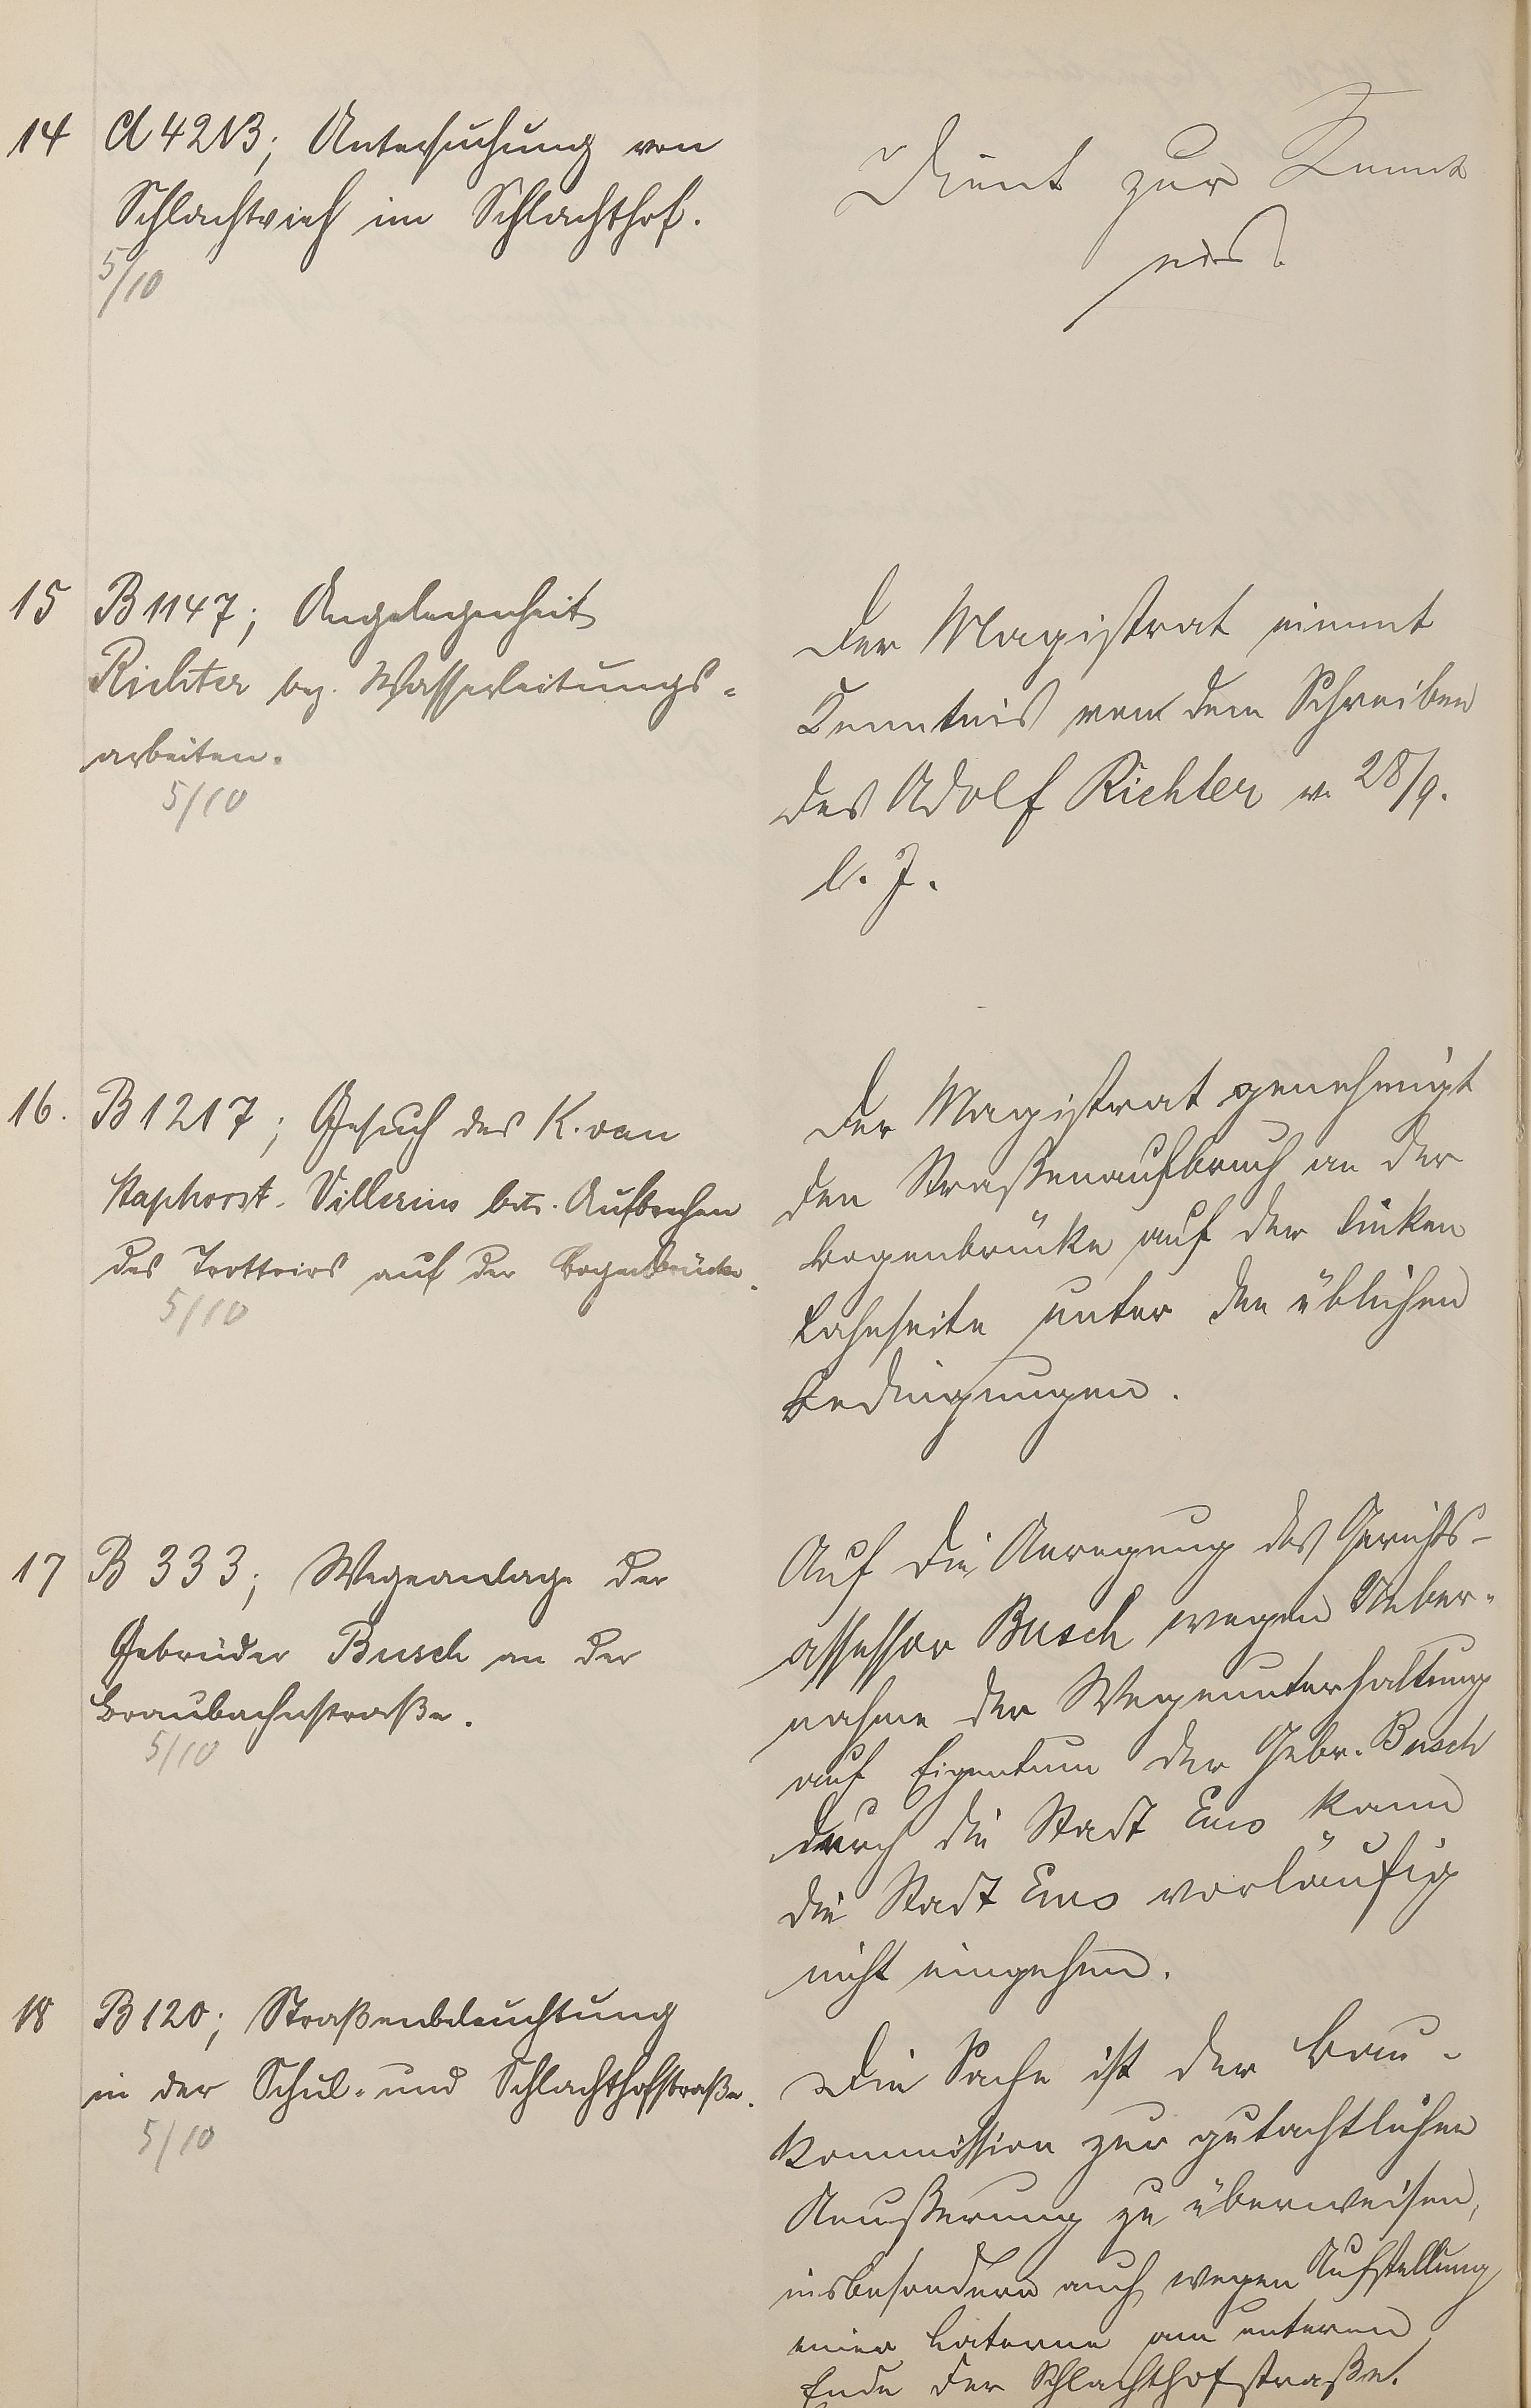 14 A 4213; Untersuchung von
Schlachtvieh im Schlachthof.
5/10
Dient zur Kennt
nis.
15 B 1147; Angelegenheit
Richter bez. Wasserleitungs-
arbeiten.
5/10
Der Magistrat nimmt
Kenntnis von dem Schreiben
des Adolf Richter v. 28/9.
l. J.
16. B 1217; Gesuch des K. van
Staphorst-Villerius betr. Aufbrechen
des Trottoirs auf der Bogenbrücke.
5/10
Der Magistrat genehmigt
den Straßenaufbruch an der
Bogenbrücke auf der linken
Lahnseite unter den üblichen
Bedingungen.
17 B 333; Wegeanlage der
Gebrüder Busch an der
Braubachstraße.
5/10
Auf die Anregung des Gerichts-
assessor Busch wegen Ueber-
nahme der Wegeunterhaltung
auf Eigentum der Gebr. Busch
durch die Stadt Ems kann
die Stadt Ems vorläufig
nicht eingehen.
18 B 120; Straßenbeleuchtung
in der Schul- und Schlachthofstraße.
5/10
Die Sache ist der Bau-
kommission zur gutachtlichen
Aeußerung zu überweisen,
insbesondere auch wegen Aufstellung
einer Laterne am unteren
Ende der Schlachthofstraße.